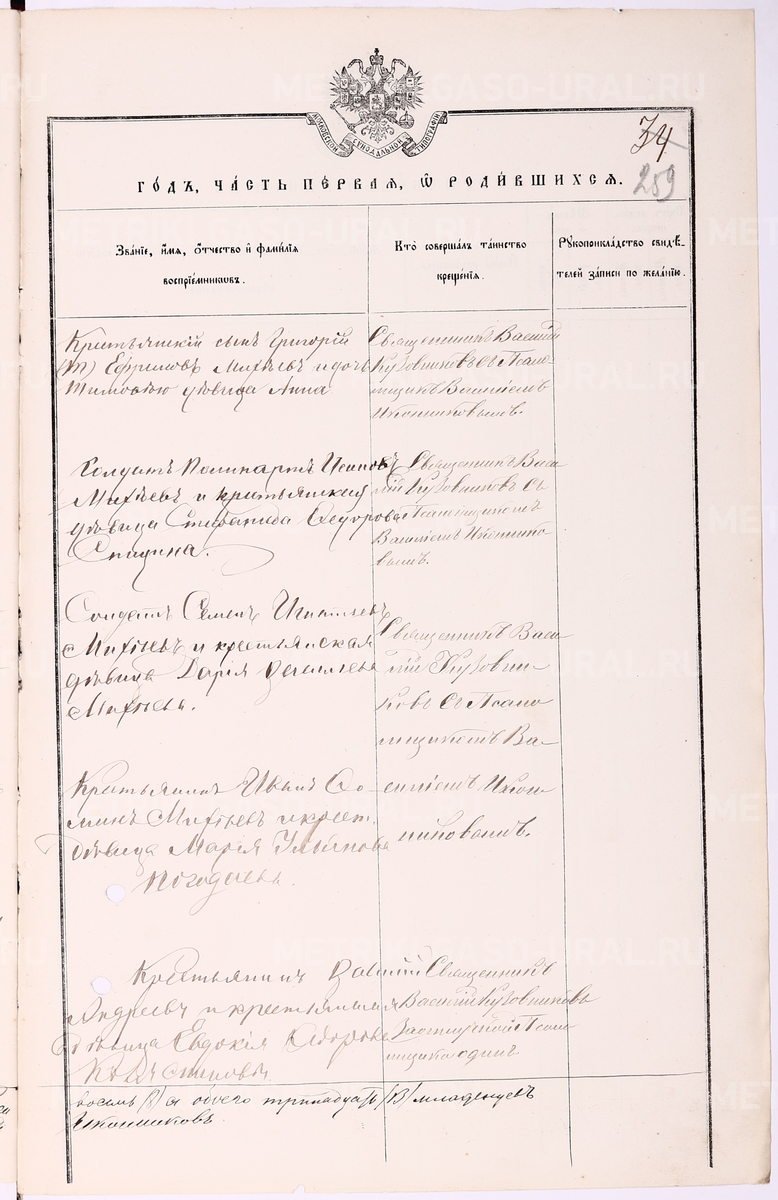 МОСКОВСКОЙ СѴНОДАЛЬНОЙ ТИПОГРАФІИ
34
259
ГОДЪ, ЧАСТЬ ПЕРВАЯ, Ѽ РОДИВШИХСЯ.
Званіе, имя, отчество и фамилія
воспріемниковъ.
Кто совершалъ таинство
крещенія.
Рукоприкладство свидѣ-
телей записи по желанію.
Крестьянскій сынъ Григорій
Ефремовъ Михѣевъ и дочь
дѣвица Анна
Священникъ Василій
Кузовниковъ съ Псало-
мщик Василіемъ
Иконниковымъ.
Солдатъ Поликарпъ
Михѣевъ и крестьянская
дѣвица Стефанида Ѳедорова
Спицина.
Священникъ Васи
лій Кузовниковъ съ
Псаломщикомъ
Василіемъ Иконнико
вымъ.
Солдатъ Семенъ Игнатьевъ
Михѣевъ и крестьянская
дѣвица Дарія Васильева
Михѣева.
Священникъ Васи
лій Кузовни-
ковъ съ Псало
мщикомъ Ва-
силіемъ Икон-
никовымъ.
Крестьянинъ Иванъ Ѳо-
минъ Михѣевъ и крест.
дѣвица Марія Ульянова
Погодаева.
Крестьянинъ Василій
Андреевъ и крестьянская
дѣвица Евдокія Ѳедорова
Священникъ
Василій Кузовниковъ
Псало
мщика одинъ
восемь (8) а обоего тринадцать (13) младенцевъ
Иконниковъ